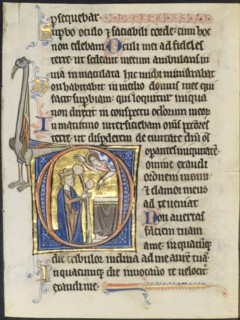 psequebar
Supbo oculo & saciabili corde: cum hoc
non edebam Oculi mei ad fideles
terre ut sedeant mecum ambulans in
uia inmaculata hic michi ministrabat
Non habitabit in medio domus mee qui
facit supbiam: qui loquitur iniqua
non direxit in conspectu oculorum meor
In matutino interficiebam omnes peccatores
terre: ut disperderem de ciuitate dni oms
operantes iniquitatem
Domine exaudi
orationem meam
& clamor meus
ad te ueniat
Non auertas
faciem tuam
a me: in quacumque
die tribulor inclina ad me aurem tuam
In quacumque die inuocauero te uelociter
exaudi me